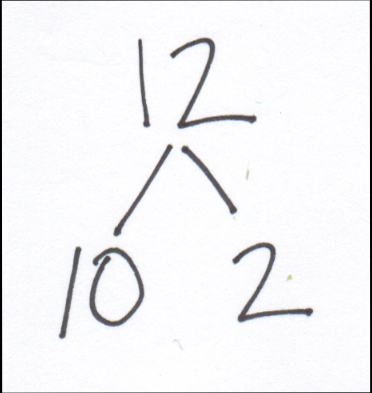 12
10 2